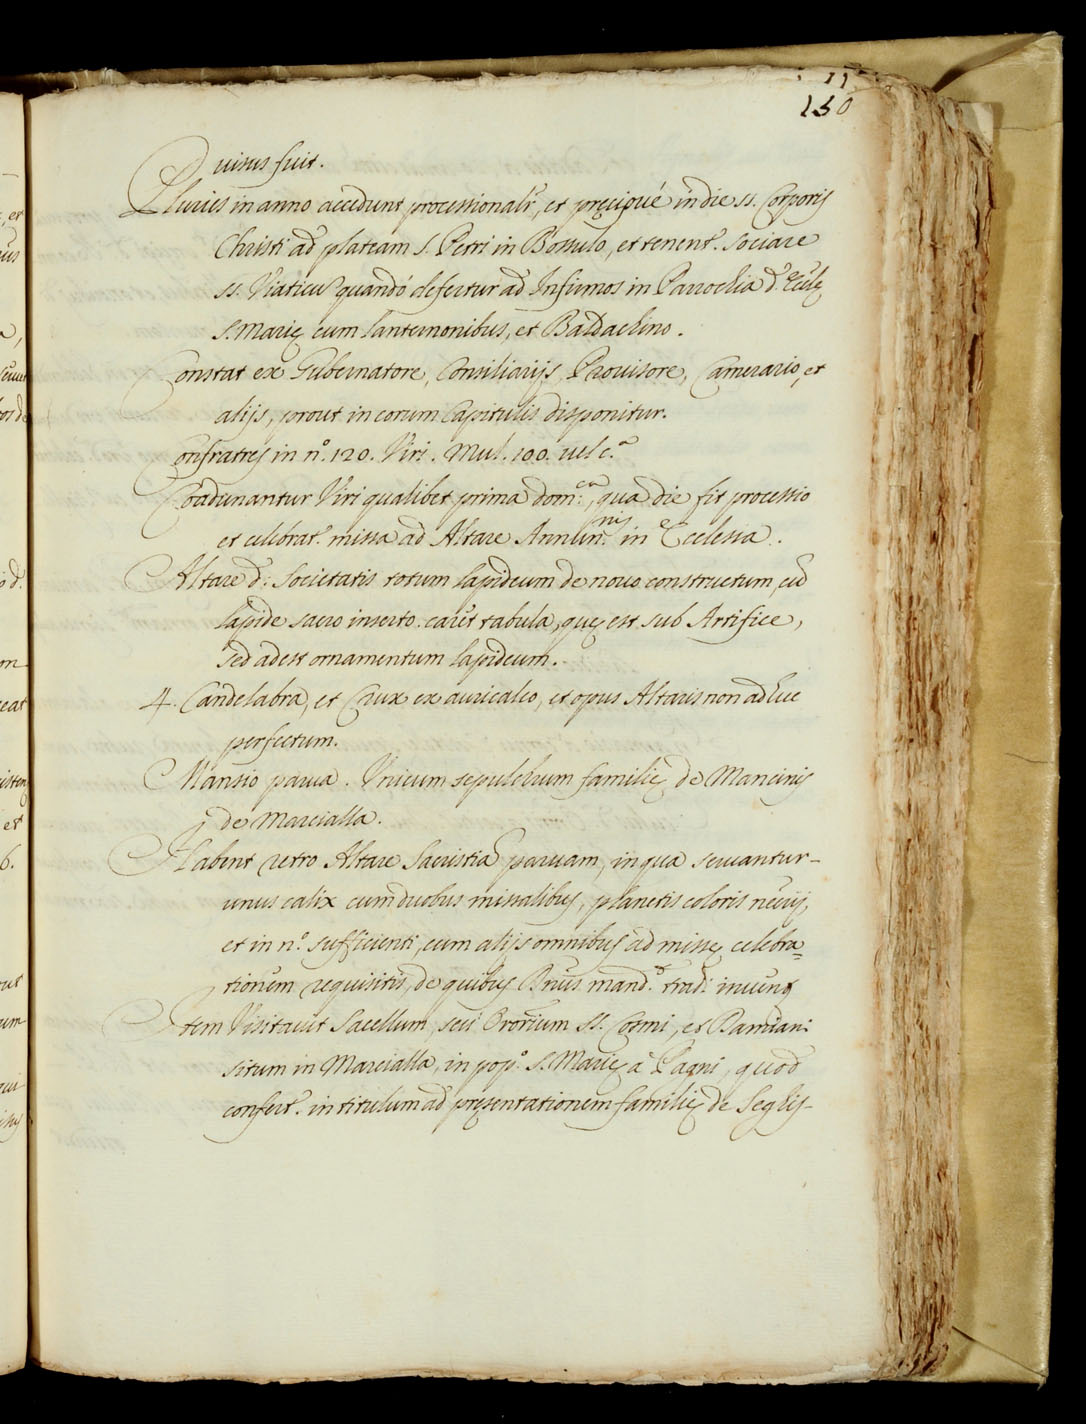 11
150
uisus fuit.
Pluries in anno accedunt processionalr̃, et pręcipué in die ss. Corporis
Christi ad plateam S. Petri in Bossulo, et tenent.r sociare
ss. Viaticũ quandó defertur ad Infirmos in Parrochia d.ę Ecclę
S. Marię cum lanternonibus, et Baldachino.
Constat ex Gubernatore, Consiliarijs, Prouisore, Camerario, et
alijs, prout in eorum Capitulis disponitur.
Confratres in n.º 120. Viri. Mul. 100. uel c.ª
Coadunantur Viri qualibet prima dom.ca, qua die fit processio
et celebrat.r missa ad Altare Annun.nis in Ecclesia.
Altare d. Societatis totum lapideum de nouo constructum, cũ
lapide sacro inserto. caret tabula, quę est sub Artifice,
sed adest ornamentum lapideum.
4. Candelabra, et Crux ex auricalco, et opus Altaris non adhuc
perfectum.
Mansio parua. Vnicum sepulchrum familię de Mancinis
de Marcialla.
Habent retro Altare Sacristiã paruam, in qua seruantur
unus calix cum duobus missalibus, planetis coloris necrij,
et in n.º sufficienti, cum alijs omnibus ad missę celebra=
tionem requisitis, de quibus Dñus mand.t trad. inuent
Item Visitauit Sacellum, seu Orõrium ss. Cosmi, et Damiani
situm in Marcialla, in pop.º S. Marię à Pagni, quod
confert.r in titulum ad pręsentationem familię de Seglis-